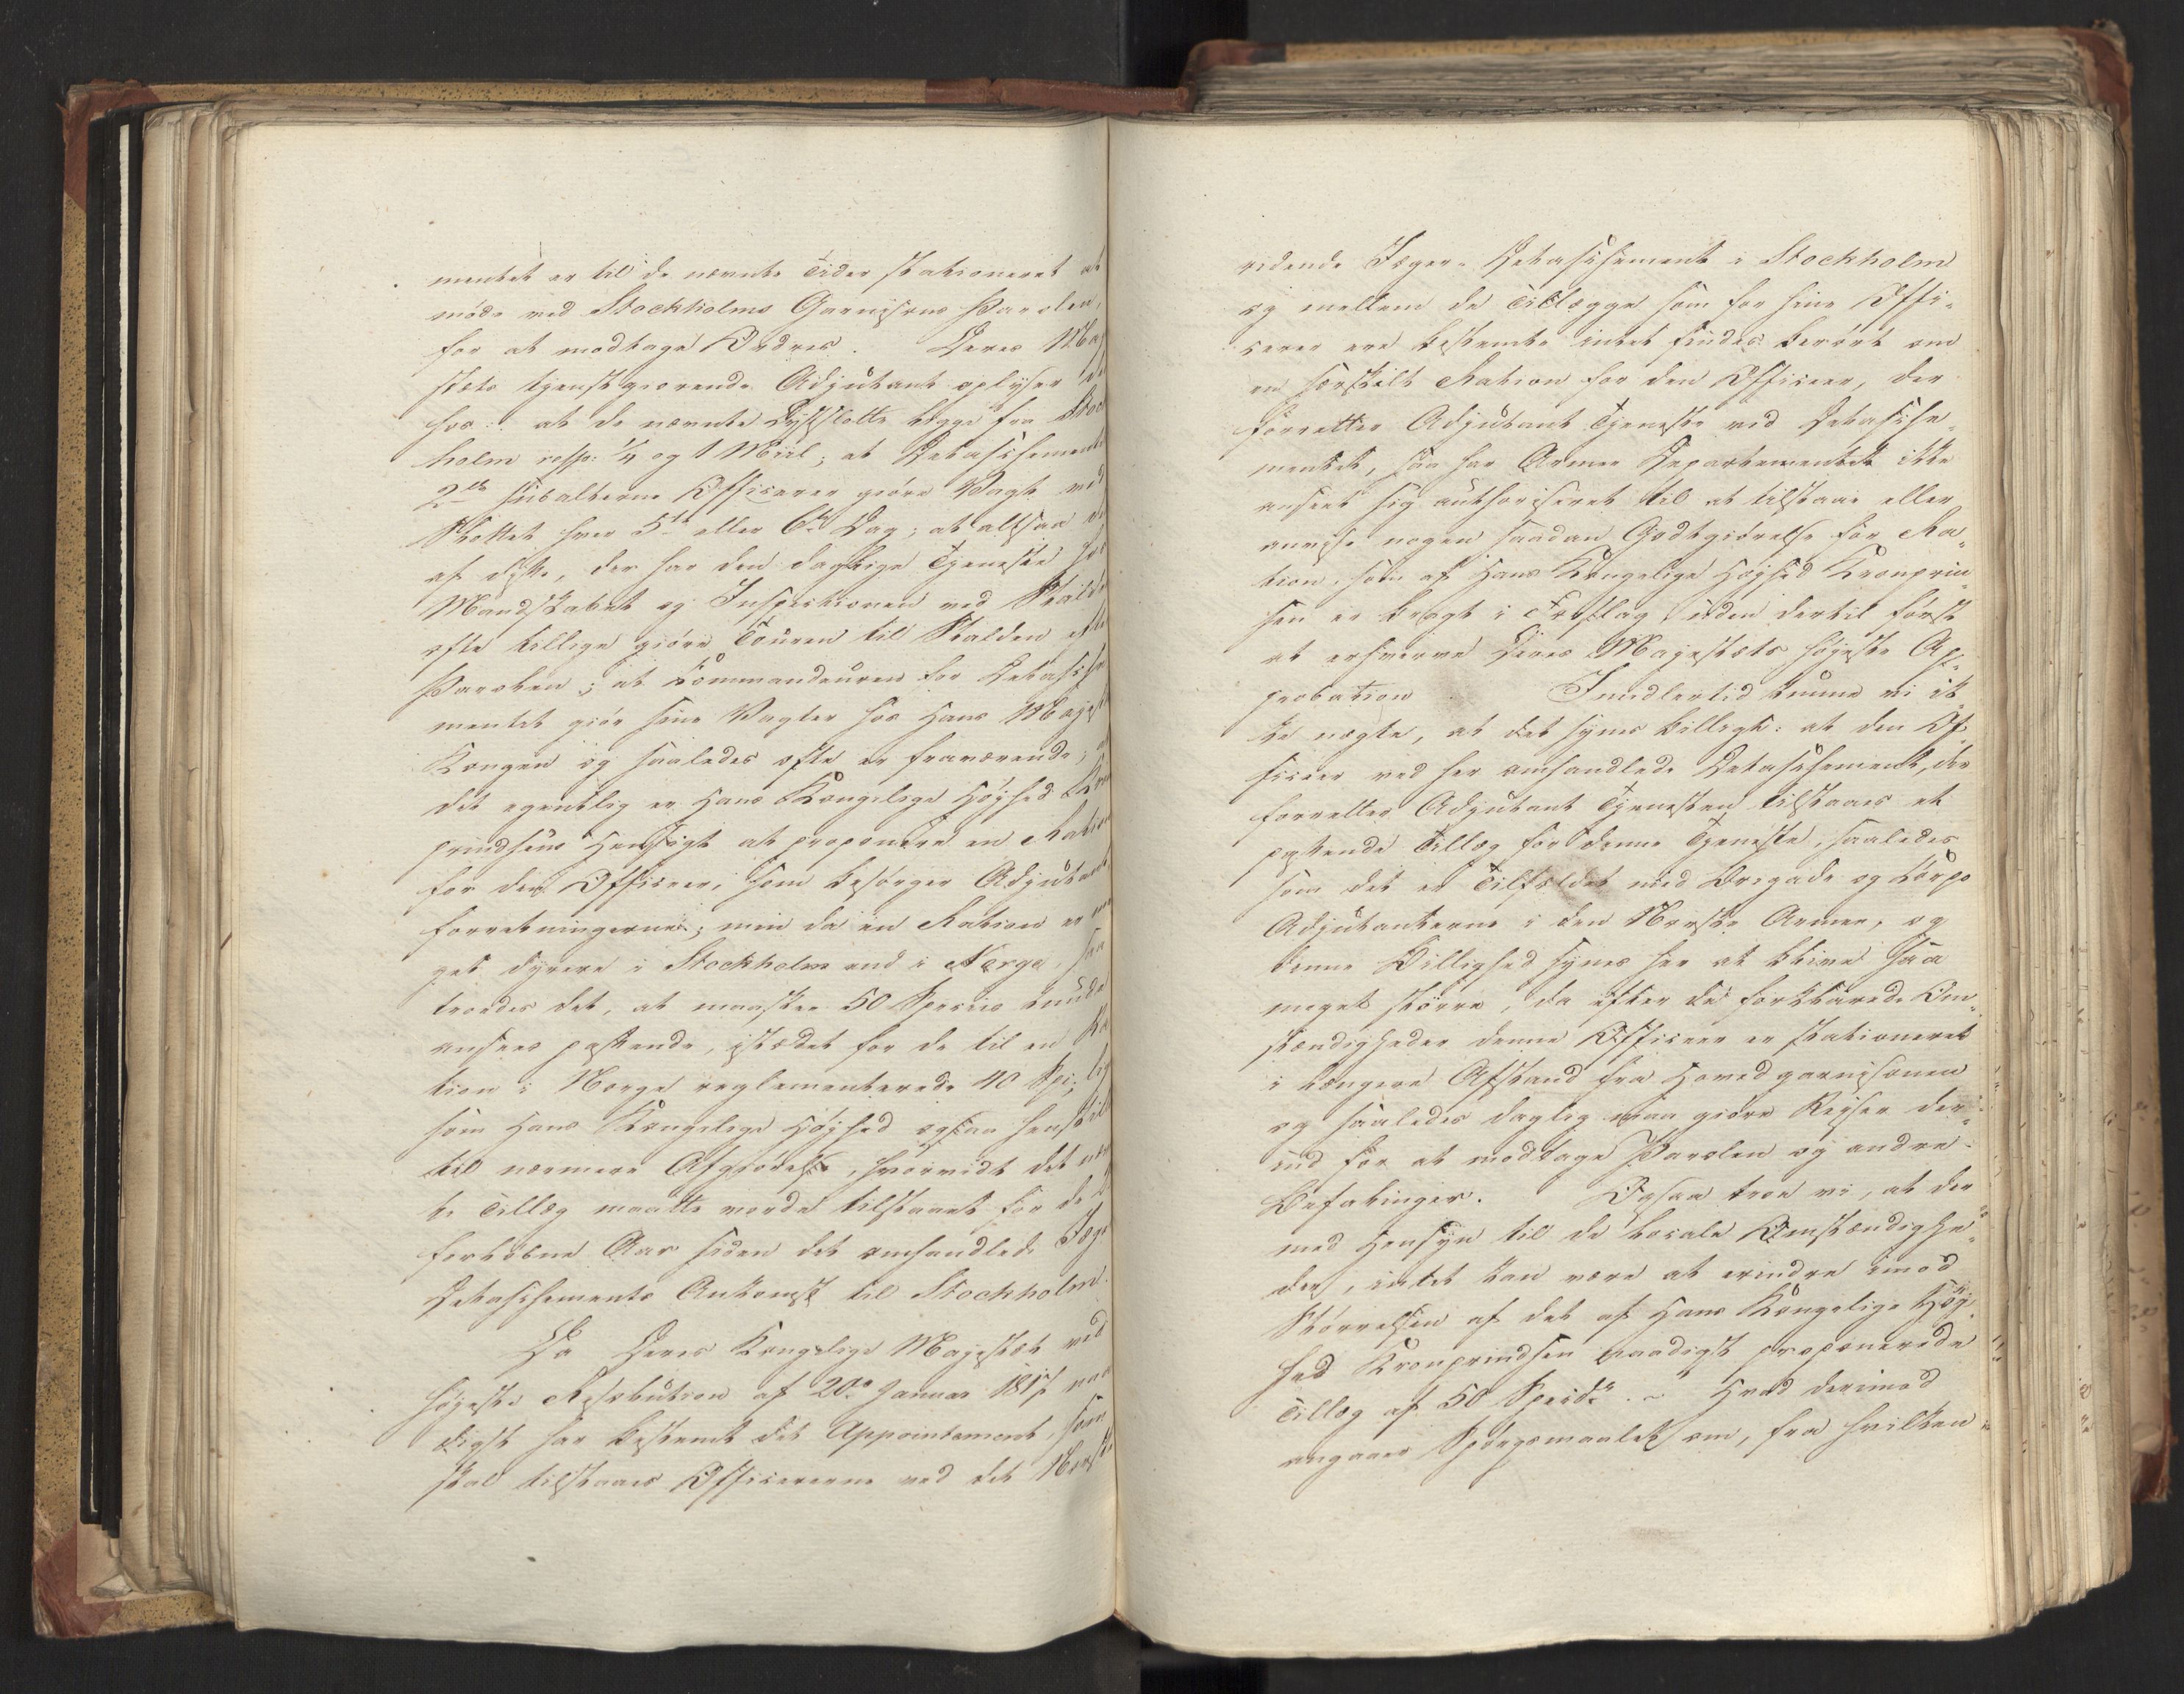 mentet er til de nævnte Tider stationeret at
møde ved Stockholms Garnisons Parolen,
for at modtage Ordres. Deres Maj
stæts tjenstgiørende Adjutant oplyser der
hos: at de nævnte Lystslotte ligge fra Stock
holm resp: 1/4 og 1 Miil; at Detaschements
2de subalterne Officerer giøre Vagt ved
Slottet hver 5te eller 6te Dag; at altsaa
af disse, der har den daglige Tjeneste hos
Mandskabet og Inspectionen ved Stalde
ofte tillige giøre Touren til Stalden efter
Parolen; at Commandeuren for Detasche
mentet giør sine Vagter hos Hans Majest
Kongen og saaledes ofte er fraværende; at
det egentlig er Hans Kongelige Høyhed Kron
prindsens Hensigt at proponere en Ration
for den Officeer, som besørger Adjutant
forretningerne; men da en Ration er me
get dyrere i Stockholm end i Norge, saa
troedes det, at maaskee 50 Species kunde
ansees passende, istedet for de til en Ra
tion i Norge reglementerede 40 Spe;
som Hans Kongelige Høyhed ogsaa henstill
til nærmere Afgiørelse, hvorvidt det næv
te Tillæg maatte vorde tilstaaet for de
forløbne Aar siden det omhandlede Jæger
Detaschements Ankomst til Stockholm.
Da Deres Kongelige Majestæt ved
høyeste Resolution af 20de Januar 181 naa
digst har bestemt det Appointement, som
skal tilstaaes Officererne ved det Norske
ridende Jæger-Detaschement i Stockholm
og mellem de Tillægge som for hine Offi-
cerer ere bestemte intet findes berørt om
en særskilt Ration for den Officeer, der
forretter Adjutant Tjeneste ved Detasche-
mentet, saa har Armee Departementet ikke
anseet sig authoriseret til at tilstaae eller
anvise nogen saadan Godtgiørelse for Ra-
tion, som af Hans Kongelige Høyhed Kronprin-
sen er bragt i Forslag uden dertil først
at erhverve Deres Majestæts høyeste Ap-
probation. Imidlertid kunne vi ik-
ke nægte, at det synes billigt: at den Of-
ficeer ved her omhandlede Detaschement, der
forretter Adjutant Tjenesten tilstaaes et
passende Tillæg for denne Tjeneste, saaledes
som det er Tilfældet med Brigade og Corps
Adjutanterne i den Norske Armee, og
denne Billighed synes her at blive saa
meget større, da efter de forklarede Om-
stændigheder denne Officeer er stationeret
i længere Afstand fra Hovedgarnisonen
og saaledes daglig maa giøre Reyser der-
ind for at modtage Parolen og andre
Befalinger. Ogsaa troe vi, at der
med Hensyn til de locale Omstændighe-
der, intet kan være at erindre imod
Størrelsen af det af Hans Kongelige Høy-
hed Kronprindsen naadigst proponerede
Tillæg af 50 Specidr. - Hvad derimod
angaaer Spørgsmaalet om, fra hvilken